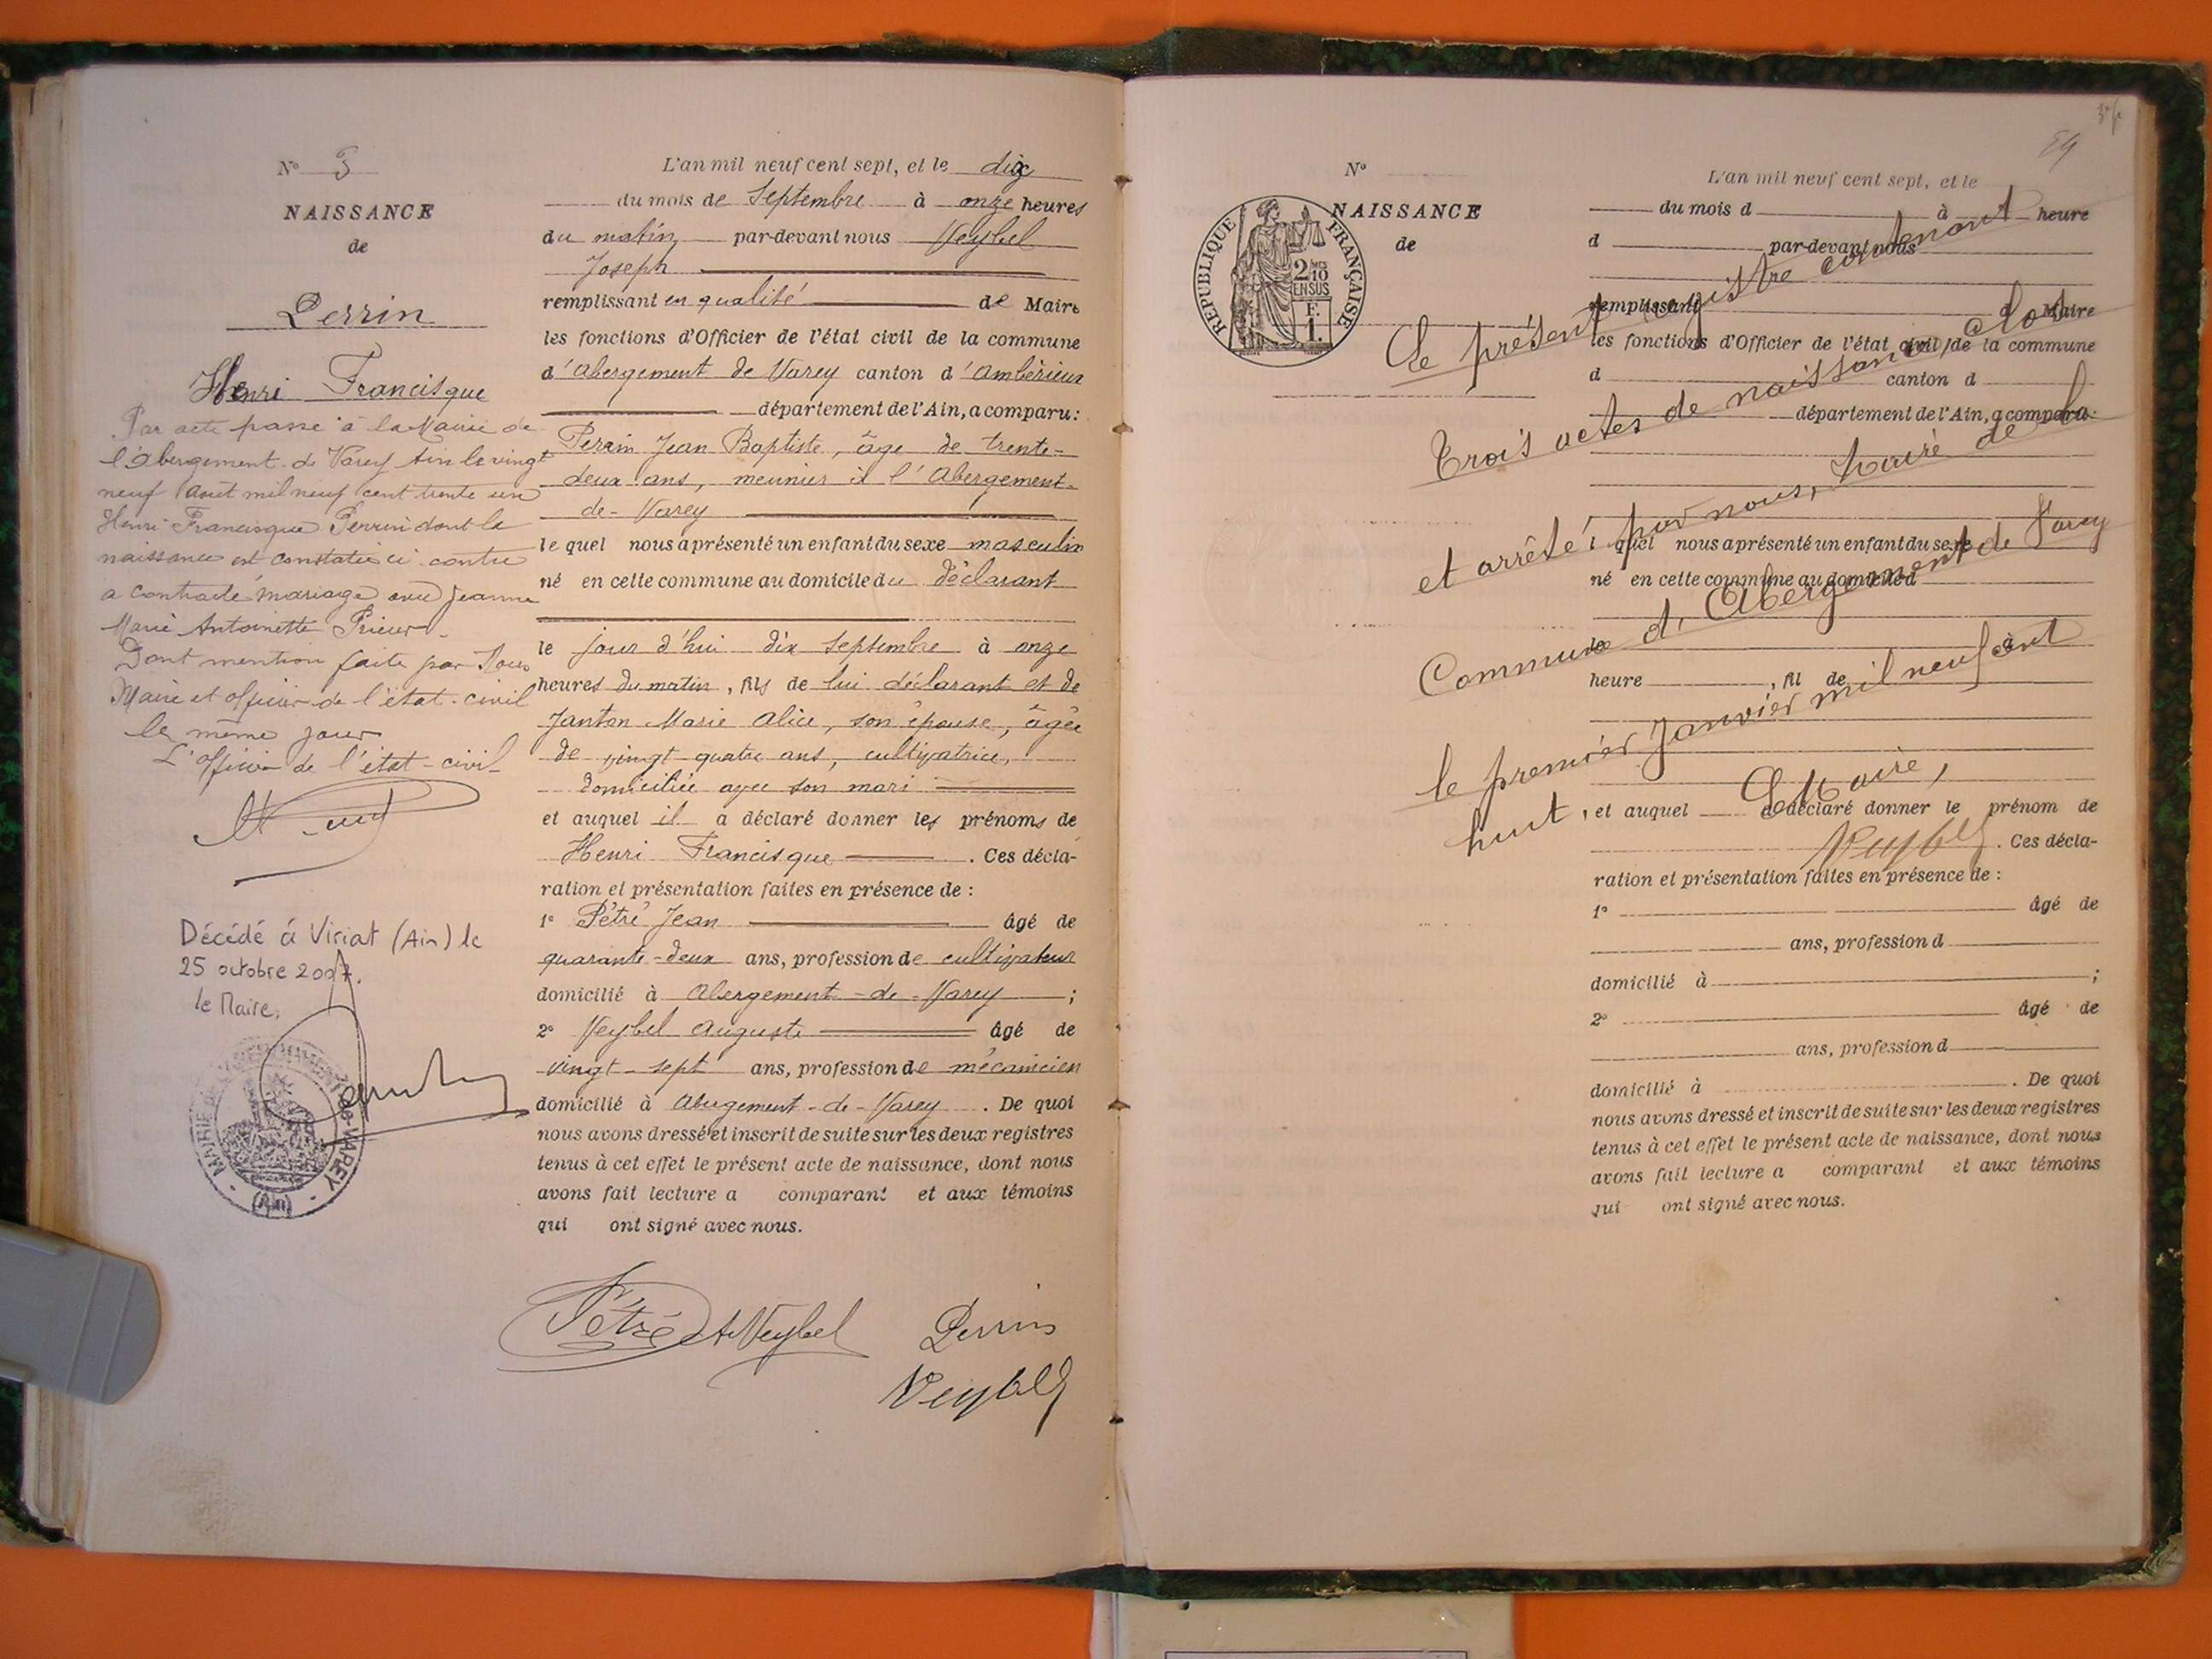 N° 3
NAISSANCE
de
Perrin
Henri Francisque
Par acte passé à la Mairie de
l'Abergement de Varey Ain le vingt
neuf Août mil neuf cent trente un
Henri Francisque Perrin dont la
naissance est constatée ci-contre
a contracté mariage avec Jeanne
Marie Antoinette Prieur.
Dont mention faite par Nous
Maire et officier de l'état-civil
le même jour
L'officier de l'état-civil
Décédé à Viriat (Ain) le
25 octobre 2007.
le Maire,
MAIRIE DE L'ABERGEMENT-de-VAREY
(Ain)
L'an mil neuf cent sept, et le dix
du mois de Septembre à onze heures
du matin par-devant nous Veybel
Joseph
remplissant en qualité de Maire
les fonctions d'Officier de l'état civil de la commune
d'Abergement de Varey canton d'Ambérieux
département de l'Ain, a comparu:
Perrin Jean Baptiste, âge de trente-
deux ans, meunier à l'Abergement-
de-Varey
lequel nous a présenté un enfant du sexe masculin
né en cette commune au domicile du déclarant
le jour d'hui dix Septembre à onze
heures du matin, fils de lui déclarant et de
Janton Marie Alice, son épouse, âgée
de vingt-quatre ans, cultivatrice,
domiciliée avec son mari
et auquel il a déclaré donner les prénoms de
Henri Francisque . Ces décla-
ration et présentation faites en présence de :
1° Pétré Jean âgé de
quarante-deux ans, profession de cultivateur
domicilié à Abergement-de-Varey ;
2° Veybel Auguste âgé de
vingt-sept ans, profession de mécanicien
domicilié à Abergement-de-Varey . De quoi
nous avons dressé et inscrit de suite sur les deux registres
tenus à cet effet le présent acte de naissance, dont nous
avons fait lecture a comparant et aux témoins
qui ont signé avec nous.
Pétré A Veybel Perrin
Veybel
N°
NAISSANCE
de
RÉPUBLIQUE FRANÇAISE
2 MES
10
EN SUS
F.
1.
L'an mil neuf cent sept, et le
du mois d à heure
d par-devant nous
remplissant d Maire
les fonctions d'Officier de l'état civil de la commune
d canton d
département de l'Ain, a comparu:
quel nous a présenté un enfant du sexe
né en cette commune au domicile d
le
heure , fil de
et auquel a déclaré donner le prénom de
. Ces décla-
ration et présentation faites en présence de :
1° âgé de
ans, profession d
domicilié à ;
2° âgé de
ans, profession d
domicilié à . De quoi
nous avons dressé et inscrit de suite sur les deux registres
tenus à cet effet le présent acte de naissance, dont nous
avons fait lecture a comparant et aux témoins
qui ont signé avec nous.
Le présent registre contenant
Trois actes de naissance, a clos
et arrêté par nous, Maire de la
Commune d'Abergement de Varey
le premier Janvier mil neuf cent
huit,
Le Maire,
Veybel